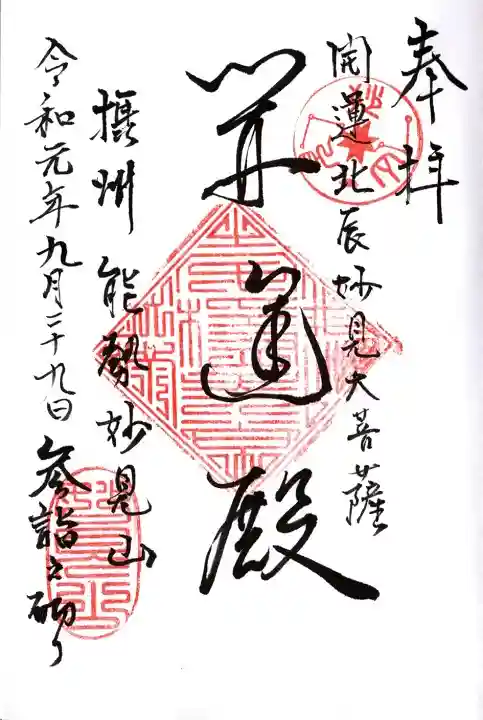 奉拝
開運北辰妙見大菩薩
開運殿
摂州 能勢妙見山
令和元年九月二十九日 参詣之砌り